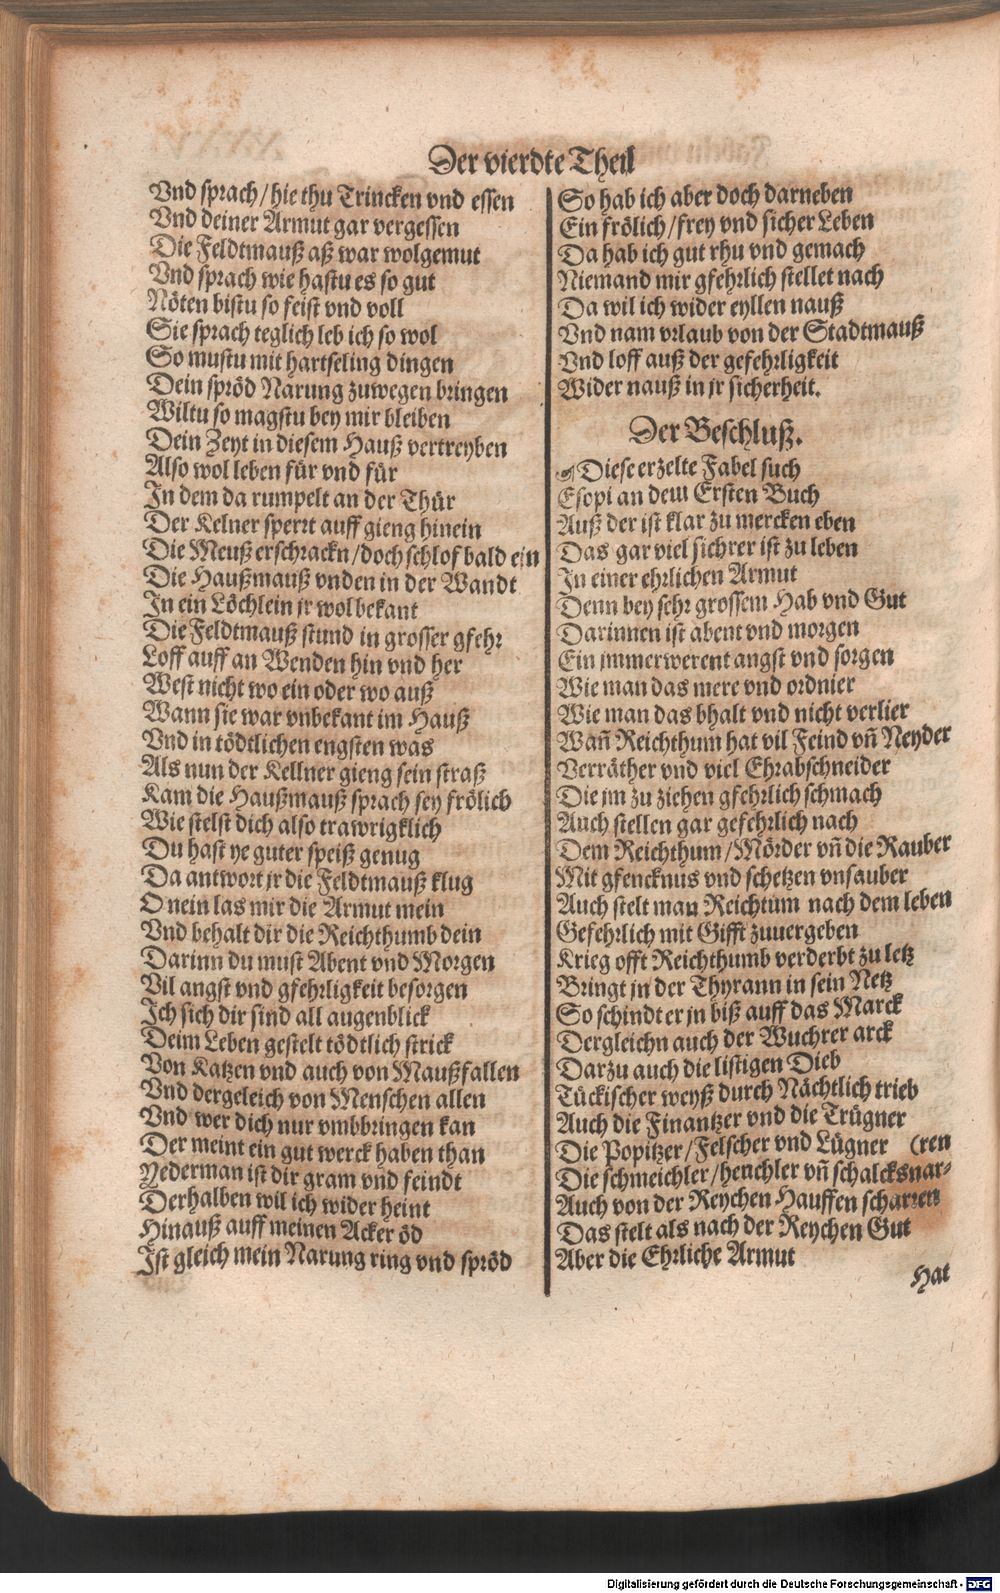 Der vierdte Theil
Vnd sprach / hie thu Trincken vnd essen
Vnd deiner Armut gar vergessen
Die Feldtmauß aß war wolgemut
Vnd sprach wie hastu es so gut
Nöten bistu so feist vnd voll
Sie sprach teglich leb ich so wol
So mustu mit hartseling dingen
Dein spröd Narung zuwegen bringen
Wiltu so magstu bey mir bleiben
Dein Zeyt in diesem Hauß vertreyben
Also wol leben für vnd für
In dem da rumpelt an der Thür
Der Kelner sperrt auff gieng hinein
Die Meuß erschrackn / doch schlof bald ein
Die Haußmauß vnden in der Wandt
In ein Löchlein jr wol bekant
Die Feldtmauß stund in grosser gfehr
Loff auff an Wenden hin vnd her
West nicht wo ein oder wo auß
Wann sie war vnbekant im Hauß
Vnd in tödtlichen engsten was
Als nun der Kellner gieng sein straß
Kam die Haußmauß sprach sey frölich
Wie stelst dich also trawrigklich
Du hast ye guter speiß genug
Da antwort jr die Feldtmauß klug
O nein las mir die Armut mein
Vnd behalt dir die Reichthumb dein
Darinn du must Abent vnd Morgen
Vil angst vnd gfehrligkeit besorgen
Ich sich dir sind all augenblick
Deim Leben gestelt tödtlich strick
Von Katzen vnd auch von Maußfallen
Vnd dergeleich von Menschen allen
Vnd wer dich nur vmbbringen kan
Der meint ein gut werck haben than
Yederman ist dir gram vnd feindt
Derhalben wil ich wider heint
Hinauß auff meinen Acker öd
Ist gleich mein Narung ring vnd spröd
So hab ich aber doch darneben
Ein frölich / frey vnd sicher Leben
Da hab ich gut rhu vnd gemach
Niemand mir gfehrlich stellet nach
Da wil ich wider eyllen nauß
Vnd nam vrlaub von der Stadtmauß
Vnd loff auß der gefehrligkeit
Wider nauß in jr sicherheit.
Der Beschluß.
☙ Diese erzelte Fabel such
Esopi an dem Ersten Buch
Auß der ist klar zu mercken eben
Das gar viel sichrer ist zu leben
In einer ehrlichen Armut
Denn bey sehr grossem Hab vnd Gut
Darinnen ist abent vnd morgen
Ein jmmerwerent angst vnd sorgen
Wie man das mere vnd ordnier
Wie man das bhalt vnd nicht verlier
Wañ Reichthum hat vil Feind vñ Neyder
Verräther vnd viel Ehrabschneider
Die jm zu ziehen gfehrlich schmach
Auch stellen gar gefehrlich nach
Dem Reichthum / Mörder vñ die Rauber
Mit gfencknus vnd schetzen vnsauber
Auch stelt man Reichtum nach dem leben
Gefehrlich mit Gifft zuuergeben
Krieg offt Reichthumb verderbt zu letz
Bringt jn der Thyrann in sein Netz
So schindt er jn biß auff das Marck
Dergleichn auch der Wuchrer arck
Darzu auch die listigen Dieb
Tückischer weyß durch Nächtlich trieb
Auch die Finantzer vnd die Trügner
Die Popitzer / Felscher vnd Lügner (ren
Die schmeichler / heuchler vñ schalcksnar-
Auch von der Reychen Hauffen scharren
Das stelt als nach der Reychen Gut
Aber die Ehrliche Armut
Hat
Digitalisierung gefördert durch die Deutsche Forschungsgemeinschaft - DFG